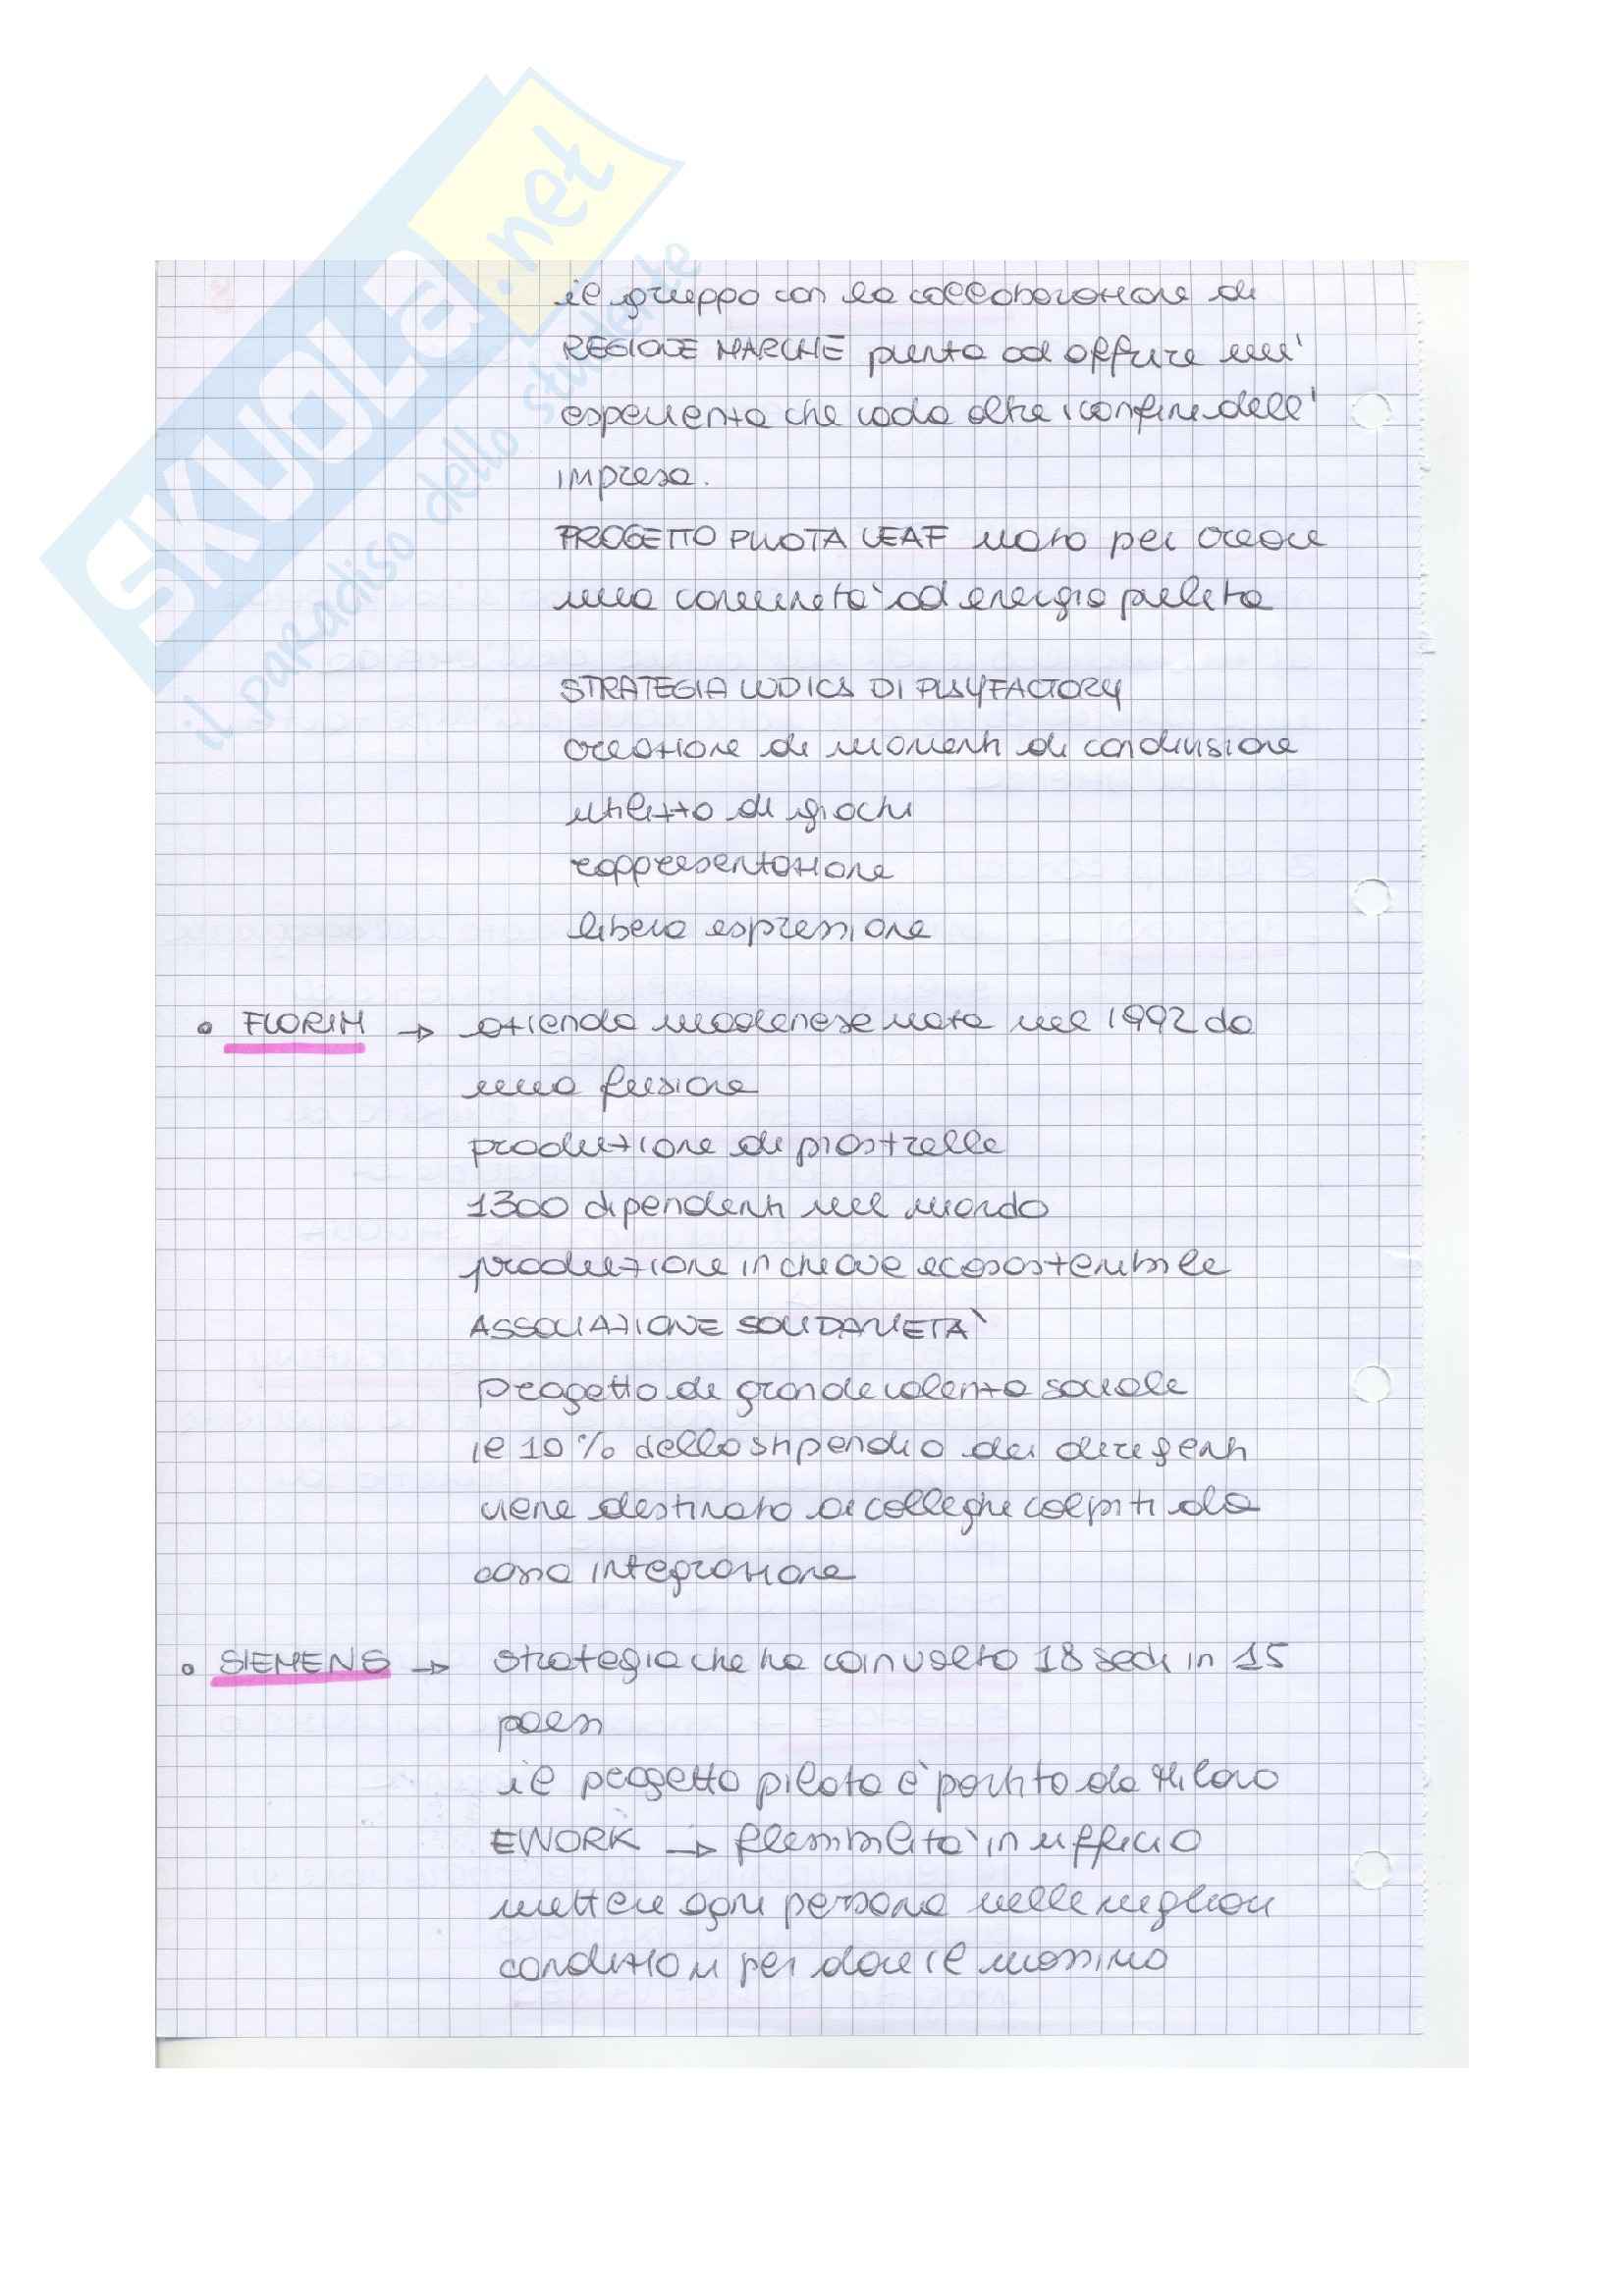 SKUOLA.net
il paradiso dello studente
il gruppo con la collaborazione di
REGIONE MARCHE punta ad offrire un'
esperienza che vada oltre i confini dell'
impresa.
PROGETTO PILOTA LEAF nato per creare
una comunità ad energia pulita
STRATEGIA LUDICA DI PLAYFACTORY
creazione di momenti di condivisione
utilizzo di giochi
rappresentazione
libera espressione
• FLORIM → azienda modenese nata nel 1992 da
una fusione
produzione di piastrelle
1300 dipendenti nel mondo
produzione in chiave ecosostenibile
ASSOCIAZIONE SOLIDARIETÀ
progetto di grande valenza sociale
il 10% dello stipendio dei dirigenti
viene destinato ai colleghi colpiti da
cassa integrazione
• SIEMENS → strategia che ha coinvolto 18 sedi in 15
paesi
il progetto pilota è partito da Milano
EWORK → flessibilità in ufficio
mettere ogni persona nelle migliori
condizioni per dare il massimo